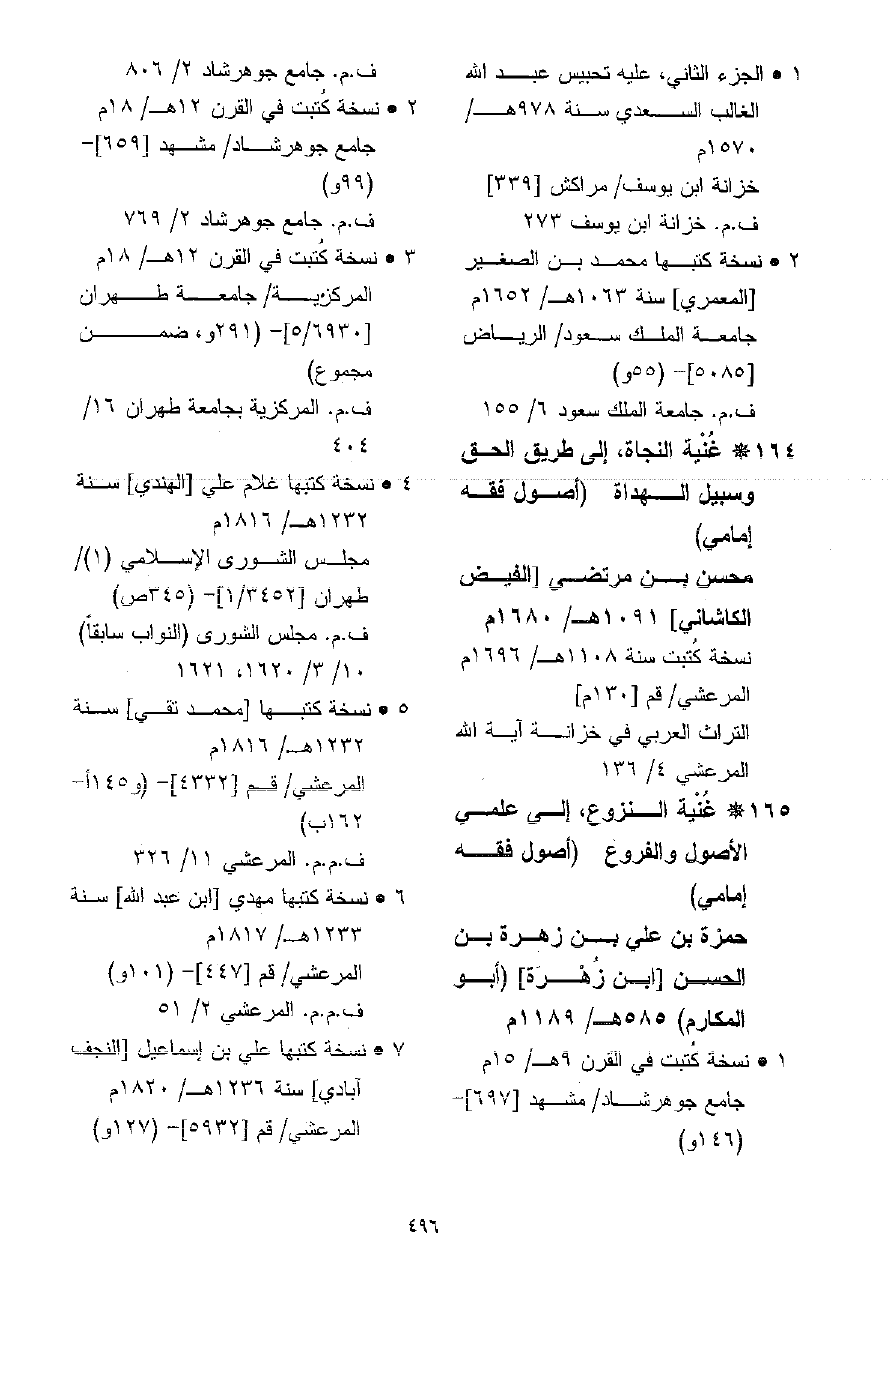 ١ • الجزء الثاني، عليه تحبيس عبد الله
الغالب السعدي سنة ٩٧٨هـ/
١٥٧٠م
خزانة ابن يوسف/ مراكش [٣٣٩]
ف.م. خزانة ابن يوسف ٢٧٣
٢ • نسخة كتبها محمد بن الصغير
[المعمري] سنة ١٠٦٣هـ/ ١٦٥٢م
جامعة الملك سعود/ الرياض
[٥٠٨٥]– (٥٥و)
ف.م. جامعة الملك سعود ٦/ ١٥٥
١٦٤ * غُنْية النجاة، إلى طريق الحق
وسبيل الهداة (أصول فقه
إمامي)
محسن بن مرتضي [الفيض
الكاشاني] ١٠٩١هـ/ ١٦٨٠م
نسخة كُتبت سنة ١١٠٨هـ/ ١٦٩٦م
المرعشي/ قم [١٣٠م]
التراث العربي في خزانة آية الله
المرعشي ٤/ ١٣٦
١٦٥ * غُنْية النزوع، إلى علمي
الأصول والفروع (أصول فقه
إمامي)
حمزة بن علي بن زهرة بن
الحسن [ابن زُهْرَة] (أبو
المكارم) ٥٨٥هـ/ ١١٨٩م
١ • نسخة كُتبت في القرن ٩هـ/ ١٥م
جامع جوهرشاد/ مشهد [٦٩٧]–
(١٤٦و)
ف.م. جامع جوهرشاد ٢/ ٨٠٦
٢ • نسخة كُتبت في القرن ١٢هـ/ ١٨م
جامع جوهرشاد/ مشهد [٦٥٩]–
(٩٩و)
ف.م. جامع جوهرشاد ٢/ ٧٦٩
٣ • نسخة كُتبت في القرن ١٢هـ/ ١٨م
المركزية/ جامعة طهران
[٥/٦٩٣٠]– (٢٩١و، ضمن
مجموع)
ف.م. المركزية بجامعة طهران ١٦/
٤٠٤
٤ • نسخة كتبها غلام علي [الهندي] سنة
١٢٣٢هـ/ ١٨١٦م
مجلس الشورى الإسلامي (١)/
طهران [١/٣٤٥٢]– (٣٤٥ص)
ف.م. مجلس الشورى (النواب سابقاً)
١٠/ ٣/ ١٦٢٠، ١٦٢١
٥ • نسخة كتبها [محمد تقي] سنة
١٢٣٢هـ/ ١٨١٦م
المرعشي/ قم [٤٣٣٢]– (و١٤٥أ–
١٦٢ب)
ف.م.م. المرعشي ١١/ ٣٢٦
٦ • نسخة كتبها مهدي [ابن عبد الله] سنة
١٢٣٣هـ/ ١٨١٧م
المرعشي/ قم [٤٤٧]– (١٠١و)
ف.م.م. المرعشي ٢/ ٥١
٧ • نسخة كتبها علي بن إسماعيل [النجف
آبادي] سنة ١٢٣٦هـ/ ١٨٢٠م
المرعشي/ قم [٥٩٣٢]– (١٢٧و)
٤٩٦